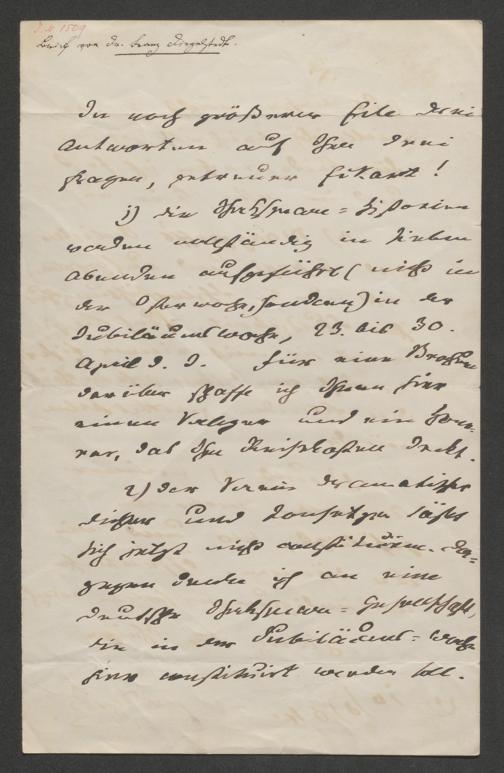 I. N. 1509
Brief von Dr. Franz Dingelstedt.
In noch größerer Eile drei
Antworten auf Ihre drei
Fragen, getreuer Eckart!
1) die Shakspeare=Historien
werden vollständig in sieben
Abenden aufgeführt (nicht in
der Osterwoche, sondern) in der
Jubiläumswoche, 23. bis 30.
April d. J. Für eine Brochure
darüber schaffe ich Ihnen hier
einen Verleger und ein Hono-
rar, das Ihre Reisekosten deckt.
2) Der Verein dramatischer
Dichter und Tonsetzer läßt
sich jetzt nicht constituiren. Da-
gegen denke ich an eine
Deutsche Shakspeare=Gesellschaft,
die in der Jubiläums=Woche
hier constituirt werden soll.